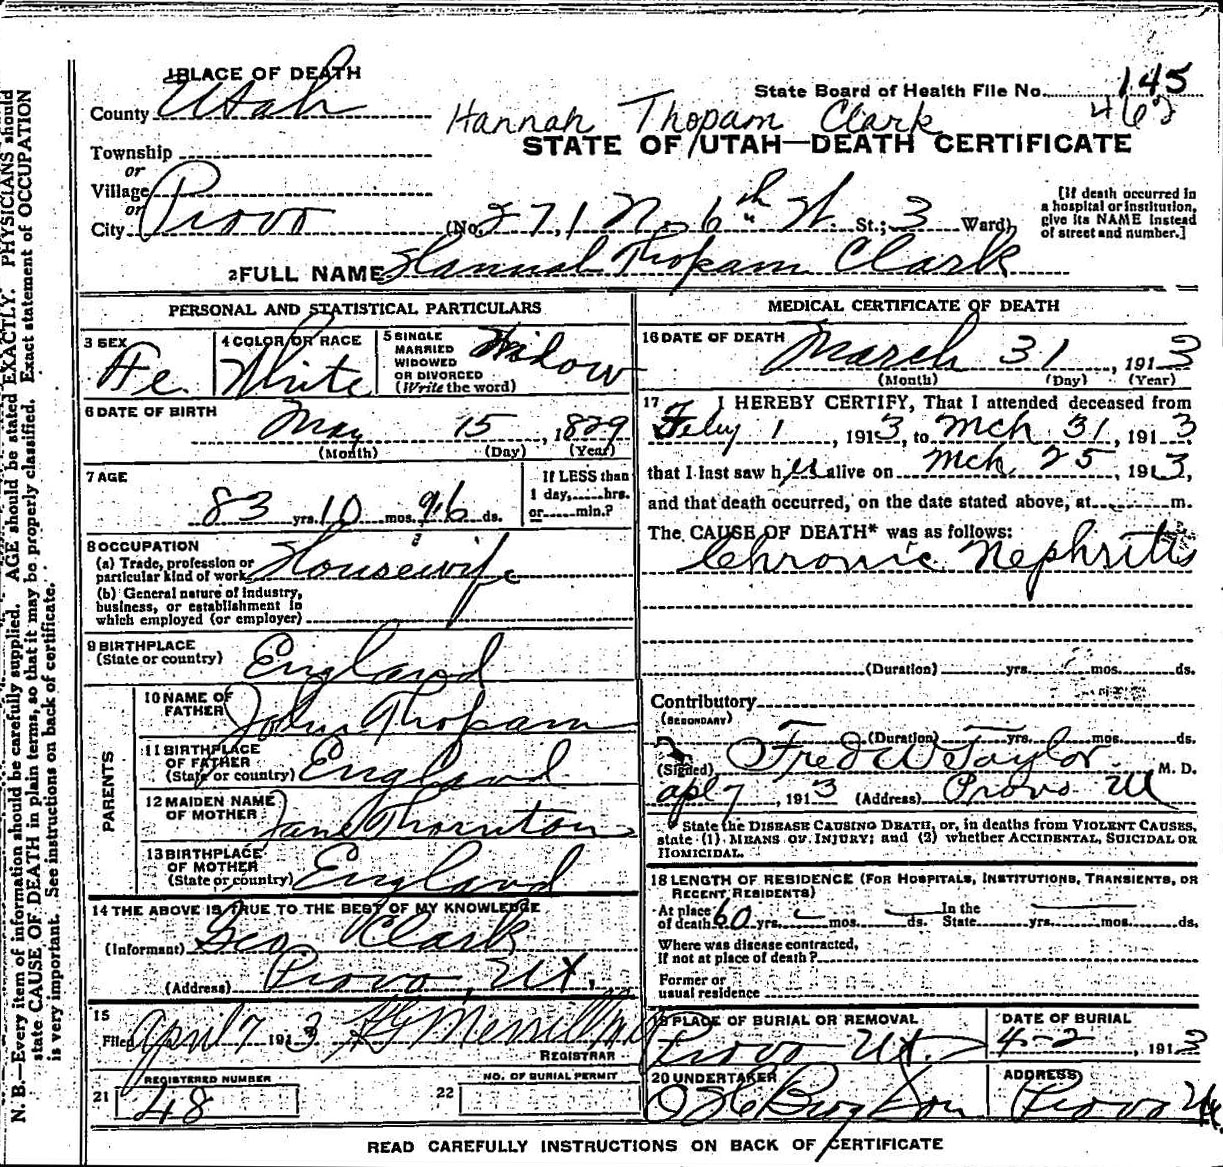 1 PLACE OF DEATH
County Utah
State Board of Health File No. 145
462
Hannah Thopam Clark
STATE OF UTAH—DEATH CERTIFICATE
Township
or
Village
or
City Provo (No. 271 N. 6th W. St.; 3 Ward)
[If death occurred in
a hospital or institution,
give its NAME instead
of street and number.]
2 FULL NAME Hannah Thopam Clark
PERSONAL AND STATISTICAL PARTICULARS
3 SEX Fe.
4 COLOR OR RACE White
5 SINGLE
MARRIED
WIDOWED
OR DIVORCED
(Write the word) Widow
6 DATE OF BIRTH May 15, 1829
(Month) (Day) (Year)
7 AGE
83 yrs. 10 mos. ds.
If LESS than
1 day, hrs.
or min.?
8 OCCUPATION
(a) Trade, profession or
particular kind of work Housewife
(b) General nature of industry,
business, or establishment in
which employed (or employer)
9 BIRTHPLACE
(State or country) England
PARENTS
10 NAME OF
FATHER John Thopam
11 BIRTHPLACE
OF FATHER
(State or country) England
12 MAIDEN NAME
OF MOTHER Jane Thornton
13 BIRTHPLACE
OF MOTHER
(State or country) England
14 THE ABOVE IS TRUE TO THE BEST OF MY KNOWLEDGE
(Informant) Geo. Clark
(Address) Provo, Ut.
15
Filed April 7 1913 Merrill
REGISTRAR
REGISTERED NUMBER
21 48
NO. OF BURIAL PERMIT
22
MEDICAL CERTIFICATE OF DEATH
16 DATE OF DEATH March 31, 1913
(Month) (Day) (Year)
17 I HEREBY CERTIFY, That I attended deceased from
Feby 1, 1913, to Mch 31, 1913
that I last saw her alive on Mch 25, 1913,
and that death occurred, on the date stated above, at m.
The CAUSE OF DEATH* was as follows:
Chronic Nephritis
(Duration) yrs. mos. ds.
Contributory
(SECONDARY)
(Duration) yrs. mos. ds.
(Signed) Fred W Taylor M. D.
Apl 7, 1913 (Address) Provo Ut
* State the DISEASE CAUSING DEATH, or, in deaths from VIOLENT CAUSES,
state (1) MEANS OF INJURY; and (2) whether ACCIDENTAL, SUICIDAL OR
HOMICIDAL.
18 LENGTH OF RESIDENCE (FOR HOSPITALS, INSTITUTIONS, TRANSIENTS, OR
RECENT RESIDENTS)
At place
of death 60 yrs. mos. ds. In the
State yrs. mos. ds.
Where was disease contracted,
If not at place of death?
Former or
usual residence
19 PLACE OF BURIAL OR REMOVAL
Provo Ut.
DATE OF BURIAL
4-2, 1913
20 UNDERTAKER
ADDRESS
Provo Ut.
READ CAREFULLY INSTRUCTIONS ON BACK OF CERTIFICATE
N. B.—Every item of information should be carefully supplied. AGE should be stated EXACTLY. PHYSICIANS should
state CAUSE OF DEATH in plain terms, so that it may be properly classified. Exact statement of OCCUPATION
is very important. See instructions on back of certificate.